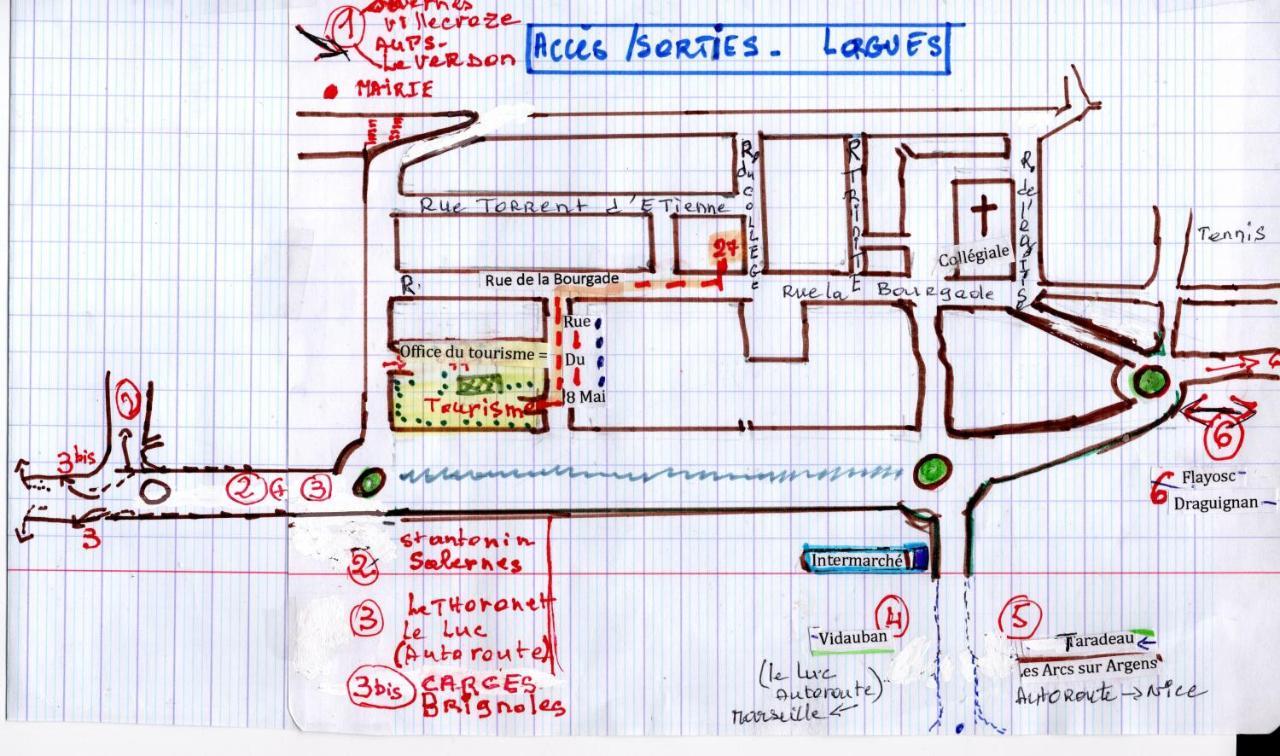 1
villecroze
AUPS-
Le VERDON
MAIRIE
ACCÈS /SORTIES - LORGUES
R. du COLLEGE
R TRINITE
R. de l'EGLISE
Rue TORRENT d'ETienne
27
Collégiale
Tennis
R.
Rue de la Bourgade
Rue la Bourgade
Rue
Du
8 Mai
Office du tourisme =
Tourisme
1
3bis
2 + 3
3
6
6 Flayosc
Draguignan
2 St antonin
Salernes
3 Le THoronet
Le Luc
(Autoroute)
3bis CARCES
Brignoles
Intermarché
4
Vidauban
(le Luc
Autoroute)
Marseille ←
5
Taradeau ←
Les Arcs sur Argens
AUTOROUTE → Nice